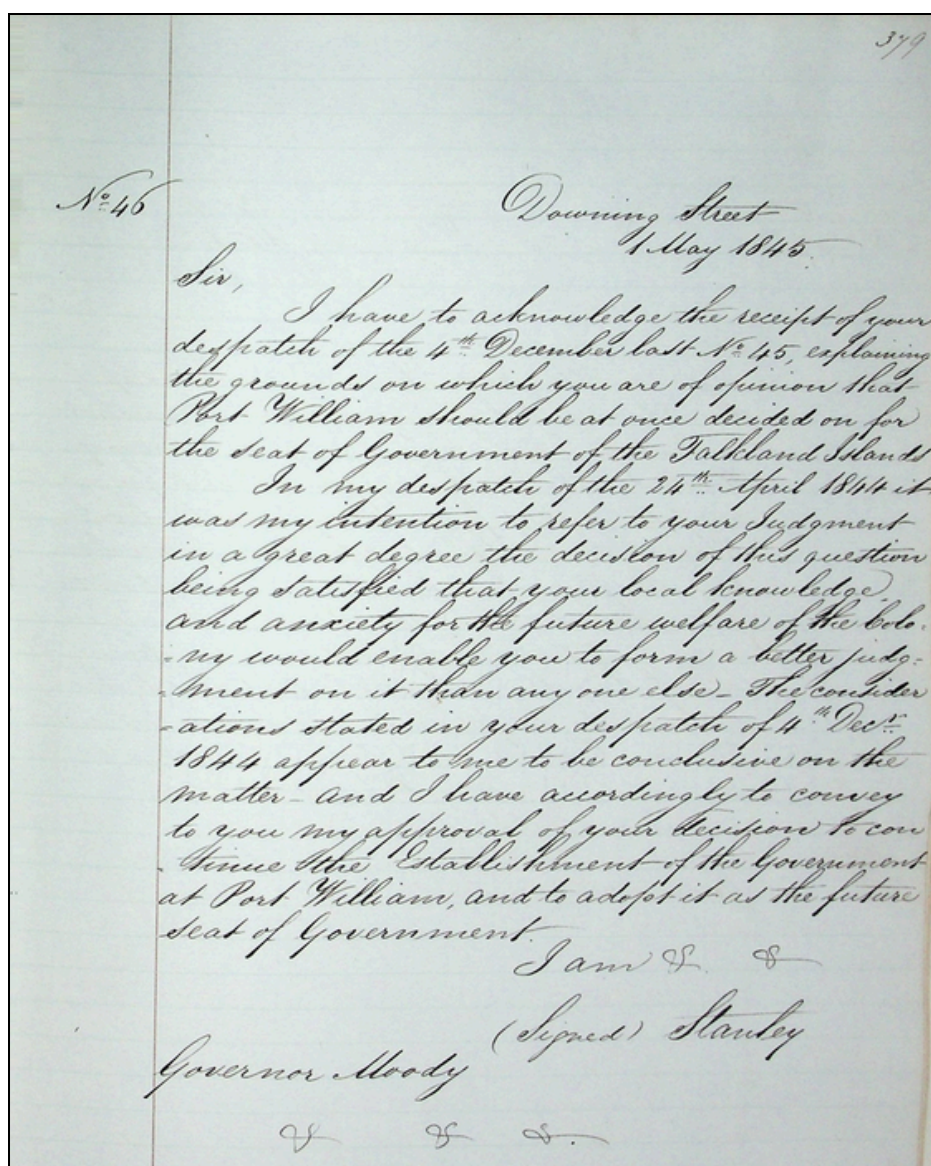 379
No. 46
Downing Street
1 May 1845.
Sir,
I have to acknowledge the receipt of your
despatch of the 4th December last No. 45, explaining
the grounds on which you are of opinion that
Port William should be at once decided on for
the seat of Government of the Falkland Islands
In my despatch of the 24th April 1844 it
was my intention to refer to your Judgment
in a great degree the decision of this question
being satisfied that your local knowledge
and anxiety for the future welfare of the Colo-
-ny would enable you to form a better judg-
-ment on it than any one else – The consider
-ations stated in your despatch of 4th Decr.
1844 appear to me to be conclusive on the
matter – and I have accordingly to convey
to you my approval of your decision to con
-tinue the Establishment of the Government
at Port William, and to adopt it as the future
seat of Government.
I am & &
(Signed) Stanley
Governor Moody
& & &.